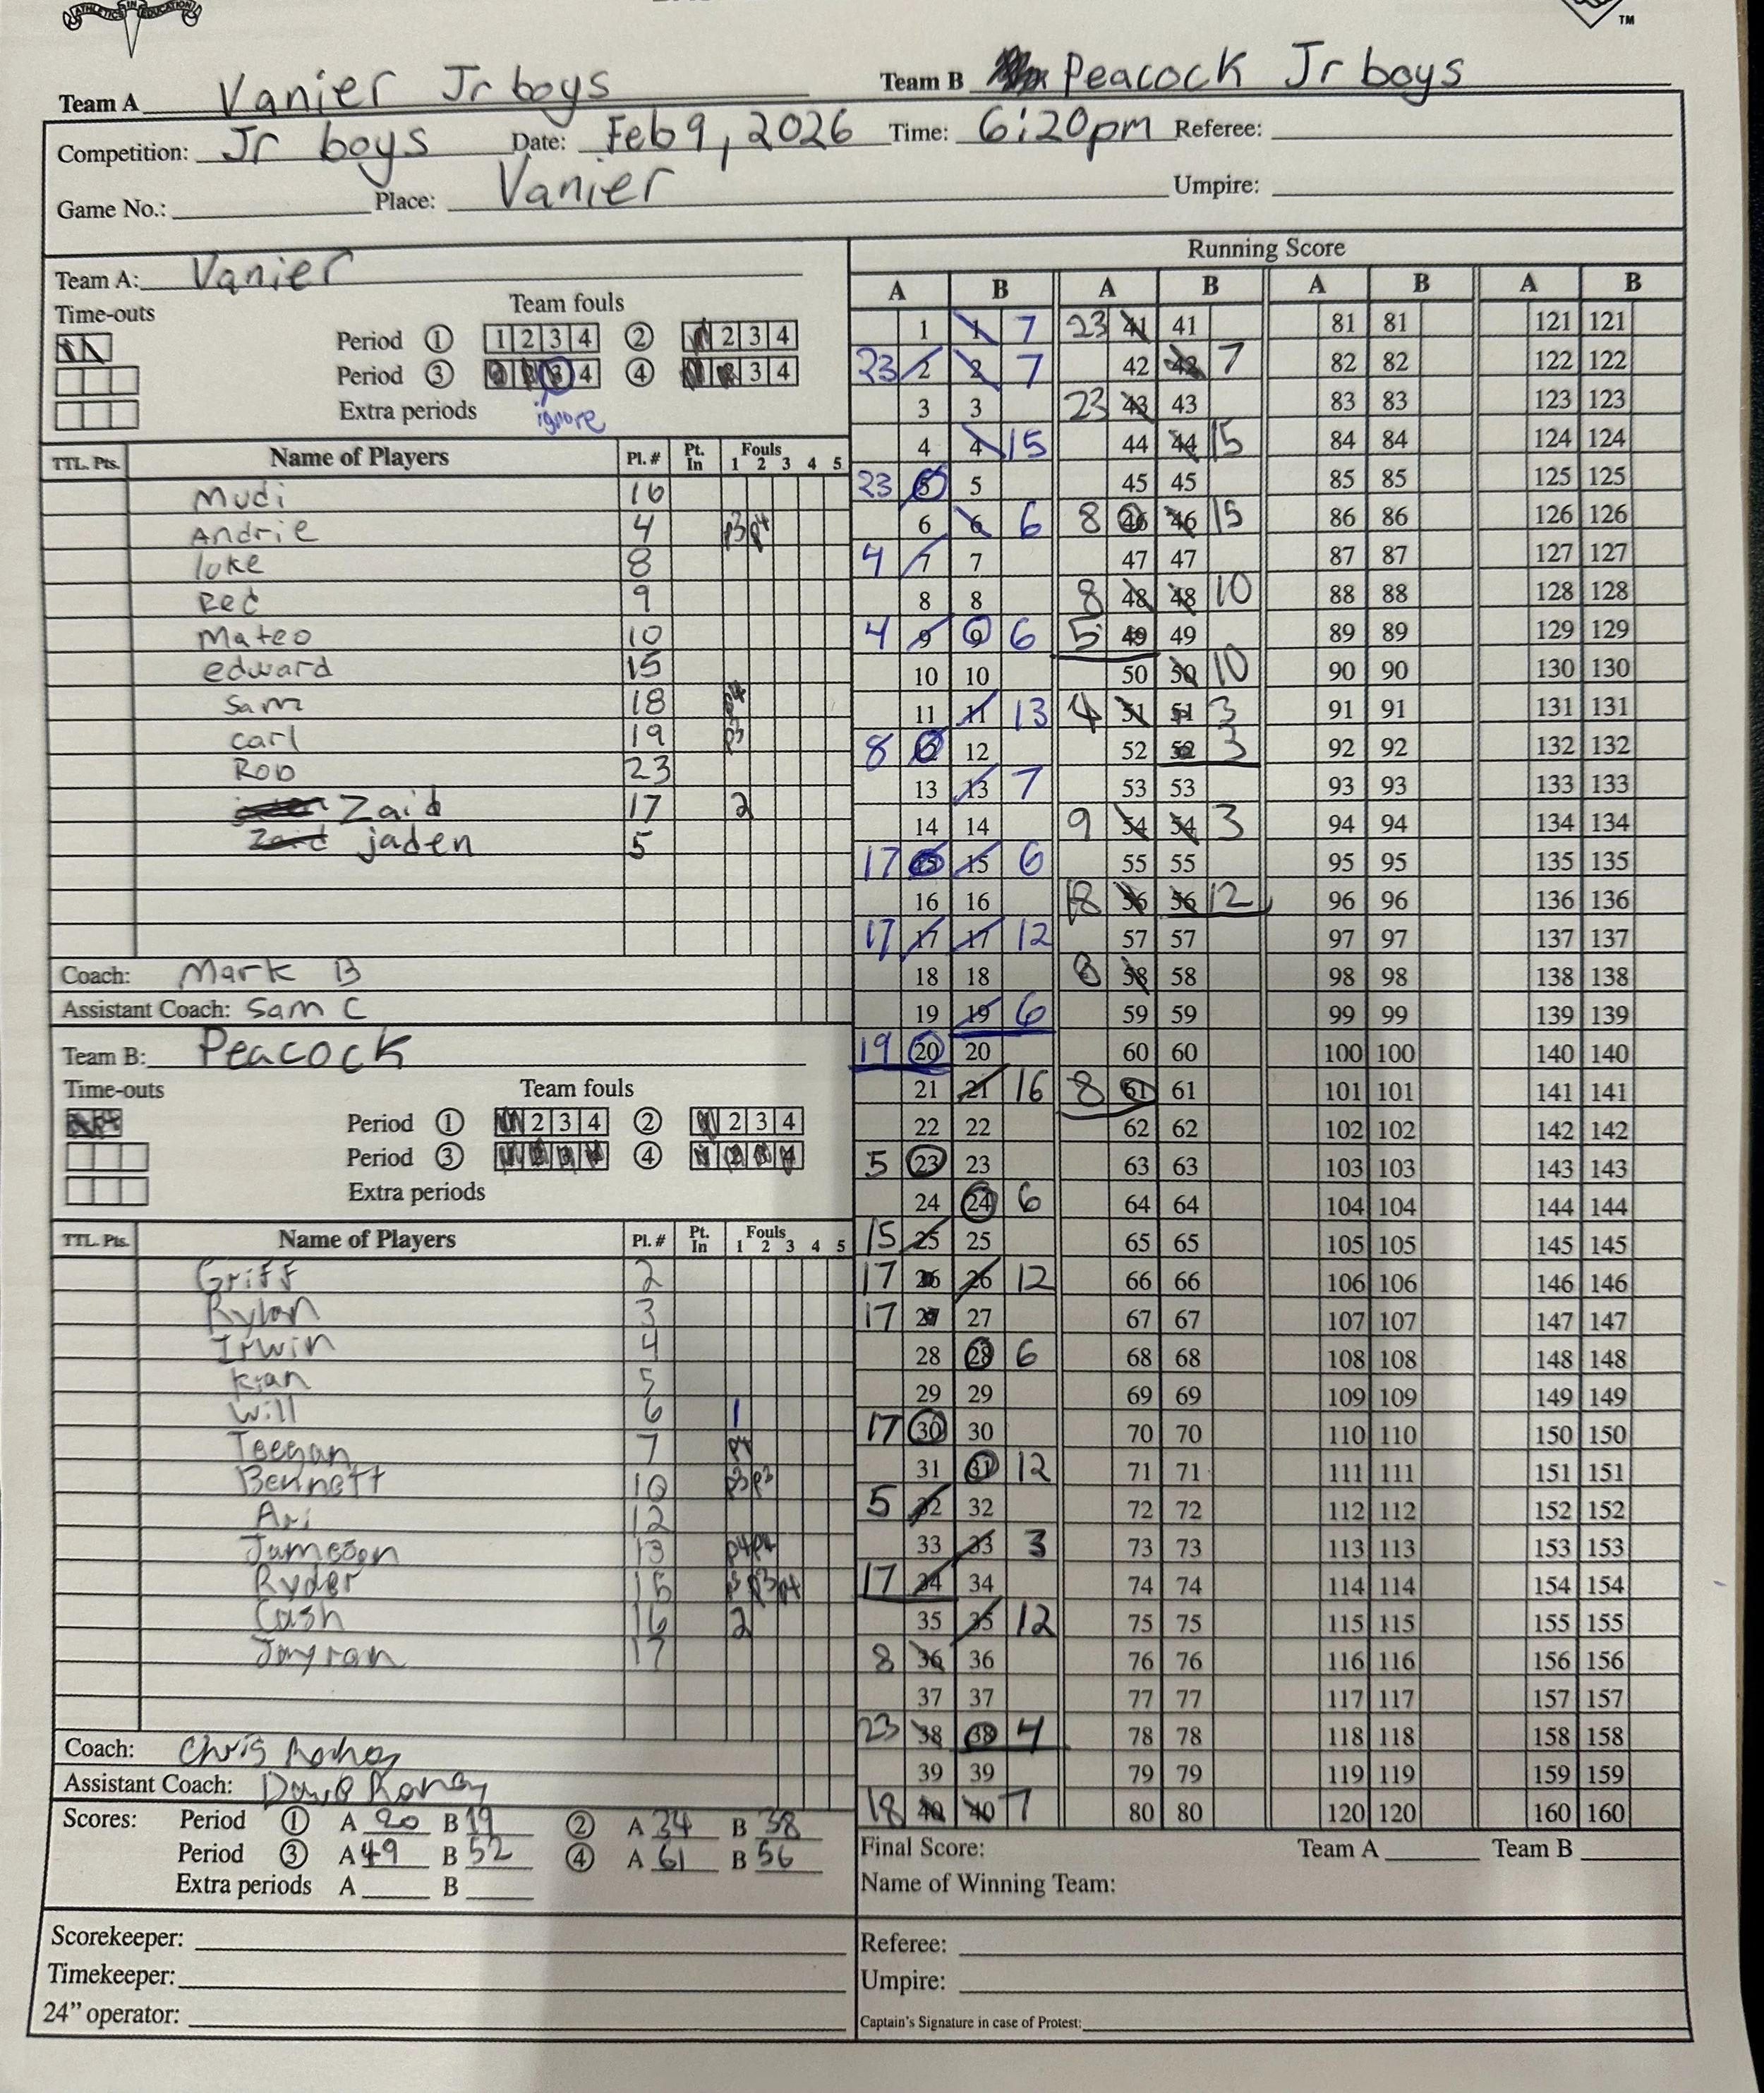 ATHLETICS IN EDUCATION
TM
Team A Vanier Jr boys Team B Peacock Jr boys
Competition: Jr boys Date: Feb 9, 2026 Time: 6:20pm Referee:
Game No.: Place: Vanier Umpire:
Team A: Vanier
Time-outs Team fouls
Period 1 1 2 3 4 2 2 3 4
Period 3 3 4 4 3 4
Extra periods ignore
TTL. Pts. Name of Players Pl. # Pt. In Fouls 1 2 3 4 5
Mudi 16
Andrie 4 p3 p4
luke 8
Red 9
Mateo 10
edward 15
Sam 18 p4
carl 19 p3
Rob 23
Zaid 17 2
jaden 5
Coach: Mark B
Assistant Coach: Sam C
Team B: Peacock
Time-outs Team fouls
Period 1 1 2 3 4 2 1 2 3 4
Period 3 1 2 3 4 4 1 2 3 4
Extra periods
TTL. Pts. Name of Players Pl. # Pt. In Fouls 1 2 3 4 5
Griff 2
Rylan 3
Irwin 4
Kian 5
Will 6 1
Teegan 7 p4
Bennett 10 p3 p3
Ari 12
Jameson 13 p4 p4
Ryder 15 p3 p3 p4
Cash 16 2
Jayran 17
Coach: Chris
Assistant Coach: Dave
Scores: Period 1 A 20 B 19 2 A 34 B 38
Period 3 A 49 B 52 4 A 61 B 56
Extra periods A B
Scorekeeper:
Timekeeper:
24” operator:
Running Score
A B A B A B A B
1 1 7 23 41 41 81 81 121 121
23 2 2 7 42 42 7 82 82 122 122
3 3 23 43 43 83 83 123 123
4 4 15 44 44 15 84 84 124 124
23 5 5 45 45 85 85 125 125
6 6 6 8 46 46 15 86 86 126 126
4 7 7 47 47 87 87 127 127
8 8 8 48 48 10 88 88 128 128
4 9 9 6 5 49 49 89 89 129 129
10 10 50 50 10 90 90 130 130
11 11 13 4 51 51 3 91 91 131 131
8 12 12 52 52 3 92 92 132 132
13 13 7 53 53 93 93 133 133
14 14 9 54 54 3 94 94 134 134
17 15 15 6 55 55 95 95 135 135
16 16 18 56 56 12 96 96 136 136
17 17 17 12 57 57 97 97 137 137
18 18 8 58 58 98 98 138 138
19 19 6 59 59 99 99 139 139
19 20 20 60 60 100 100 140 140
21 21 16 8 61 61 101 101 141 141
22 22 62 62 102 102 142 142
5 23 23 63 63 103 103 143 143
24 24 6 64 64 104 104 144 144
15 25 25 65 65 105 105 145 145
17 26 26 12 66 66 106 106 146 146
17 27 27 67 67 107 107 147 147
28 28 6 68 68 108 108 148 148
29 29 69 69 109 109 149 149
17 30 30 70 70 110 110 150 150
31 31 12 71 71 111 111 151 151
5 32 32 72 72 112 112 152 152
33 33 3 73 73 113 113 153 153
17 34 34 74 74 114 114 154 154
35 35 12 75 75 115 115 155 155
8 36 36 76 76 116 116 156 156
37 37 77 77 117 117 157 157
23 38 38 4 78 78 118 118 158 158
39 39 79 79 119 119 159 159
18 40 40 7 80 80 120 120 160 160
Final Score: Team A Team B
Name of Winning Team:
Referee:
Umpire:
Captain's Signature in case of Protest: